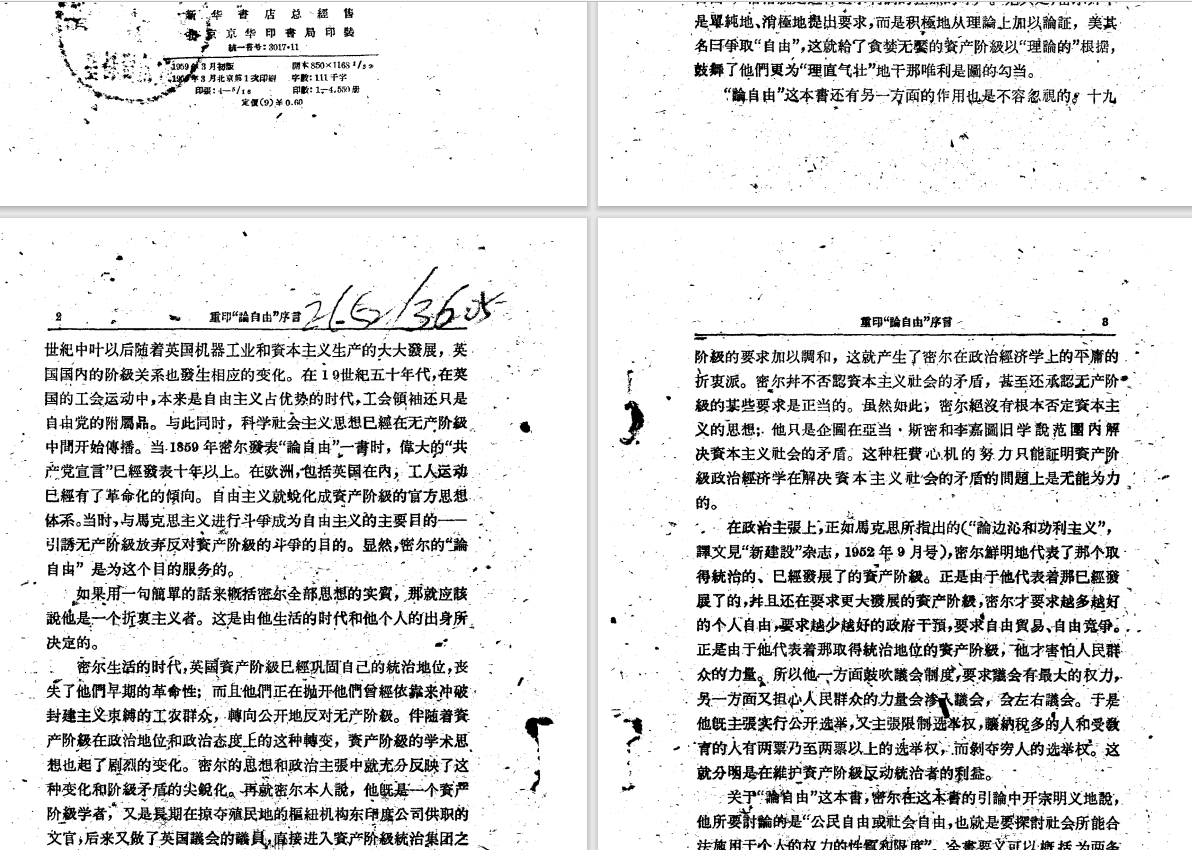 新华書店总經售
京华印書局印裝
統一書号：3017·11
1959年3月初版
開本850×1168 1/32
1959年3月北京第1次印刷
字数：111千字
印張：4—5/16
印数：1—4,550册
定價(9)￥0.60
是單純地、消極地提出要求，而是积極地从理論上加以論証，美其
名曰爭取“自由”，这就給了貪婪无饜的資产阶級以“理論的”根据，
鼓舞了他們更为“理直气壮”地干那唯利是圖的勾当。
“論自由”这本書还有另一方面的作用也是不容忽視的。十九
2
重印“論自由”序言
世紀中叶以后随着英国机器工业和資本主义生产的大大發展，英
国国内的阶級关系也發生相应的变化。在19世紀五十年代，在英
国的工会运动中，本来是自由主义占优势的时代，工会領袖还只是
自由党的附屬品。与此同时，科学社会主义思想已經在无产阶級
中間开始傳播。当1859年密尔發表“論自由”一書时，偉大的“共
产党宣言”已經發表十年以上。在欧洲，包括英国在內，工人运动
已經有了革命化的傾向。自由主义就蛻化成資产阶級的官方思想
体系。当时，与馬克思主义进行斗爭成为自由主义的主要目的——
引誘无产阶級放弃反对資产阶級的斗爭的目的。显然，密尔的“論
自由”是为这个目的服务的。
如果用一句簡單的話来概括密尔全部思想的实質，那就应該
說他是一个折衷主义者。这是由他生活的时代和他个人的出身所
决定的。
密尔生活的时代，英国資产阶級已經巩固自己的統治地位，丧
失了他們早期的革命性；而且他們正在抛开他們曾經依靠来冲破
封建主义束縛的工农群众，轉向公开地反对无产阶級。伴随着資
产阶級在政治地位和政治态度上的这种轉变，資产阶級的学术思
想也起了剧烈的变化。密尔的思想和政治主張中就充分反映了这
种变化和阶級矛盾的尖銳化。再就密尔本人說，他旣是一个資产
阶級学者，又是長期在掠夺殖民地的樞紐机构东印度公司供职的
文官，后来又做了英国議会的議員，直接进入資产阶級統治集团之
重印“論自由”序言
3
阶級的要求加以調和，这就产生了密尔在政治經济学上的平庸的
折衷派。密尔幷不否認資本主义社会的矛盾，甚至还承認无产阶
級的某些要求是正当的。虽然如此，密尔絕沒有根本否定資本主
义的思想；他只是企圖在亞当·斯密和李嘉圖旧学說范圍內解
决資本主义社会的矛盾。这种枉費心机的努力只能証明資产阶
級政治經济学在解决資本主义社会的矛盾的問題上是无能为力
的。
在政治主張上，正如馬克思所指出的（“論边沁和功利主义”，
譯文見“新建設”杂志，1952年9月号），密尔鮮明地代表了那个取
得統治的、已經發展了的資产阶級。正是由于他代表着那已經發
展了的，幷且还在要求更大發展的資产阶級，密尔才要求越多越好
的个人自由，要求越少越好的政府干預，要求自由貿易、自由竞爭。
正是由于他代表着那取得統治地位的資产阶級，他才害怕人民群
众的力量。所以他一方面鼓吹議会制度，要求議会有最大的权力，
另一方面又担心人民群众的力量会渗入議会，会左右議会。于是
他旣主張实行公开选举，又主張限制选举权，讓納稅多的人和受敎
育的人有两票乃至两票以上的选举权，而剝夺穷人的选举权。这
就分明是在維护資产阶級反动統治者的利益。
关于“論自由”这本書，密尔在这本書的引論中开宗明义地說，
他所要討論的是“公民自由或社会自由，也就是要探討社会所能合
法施用于个人的权力的性質和限度”。全書要义可以概括为两条